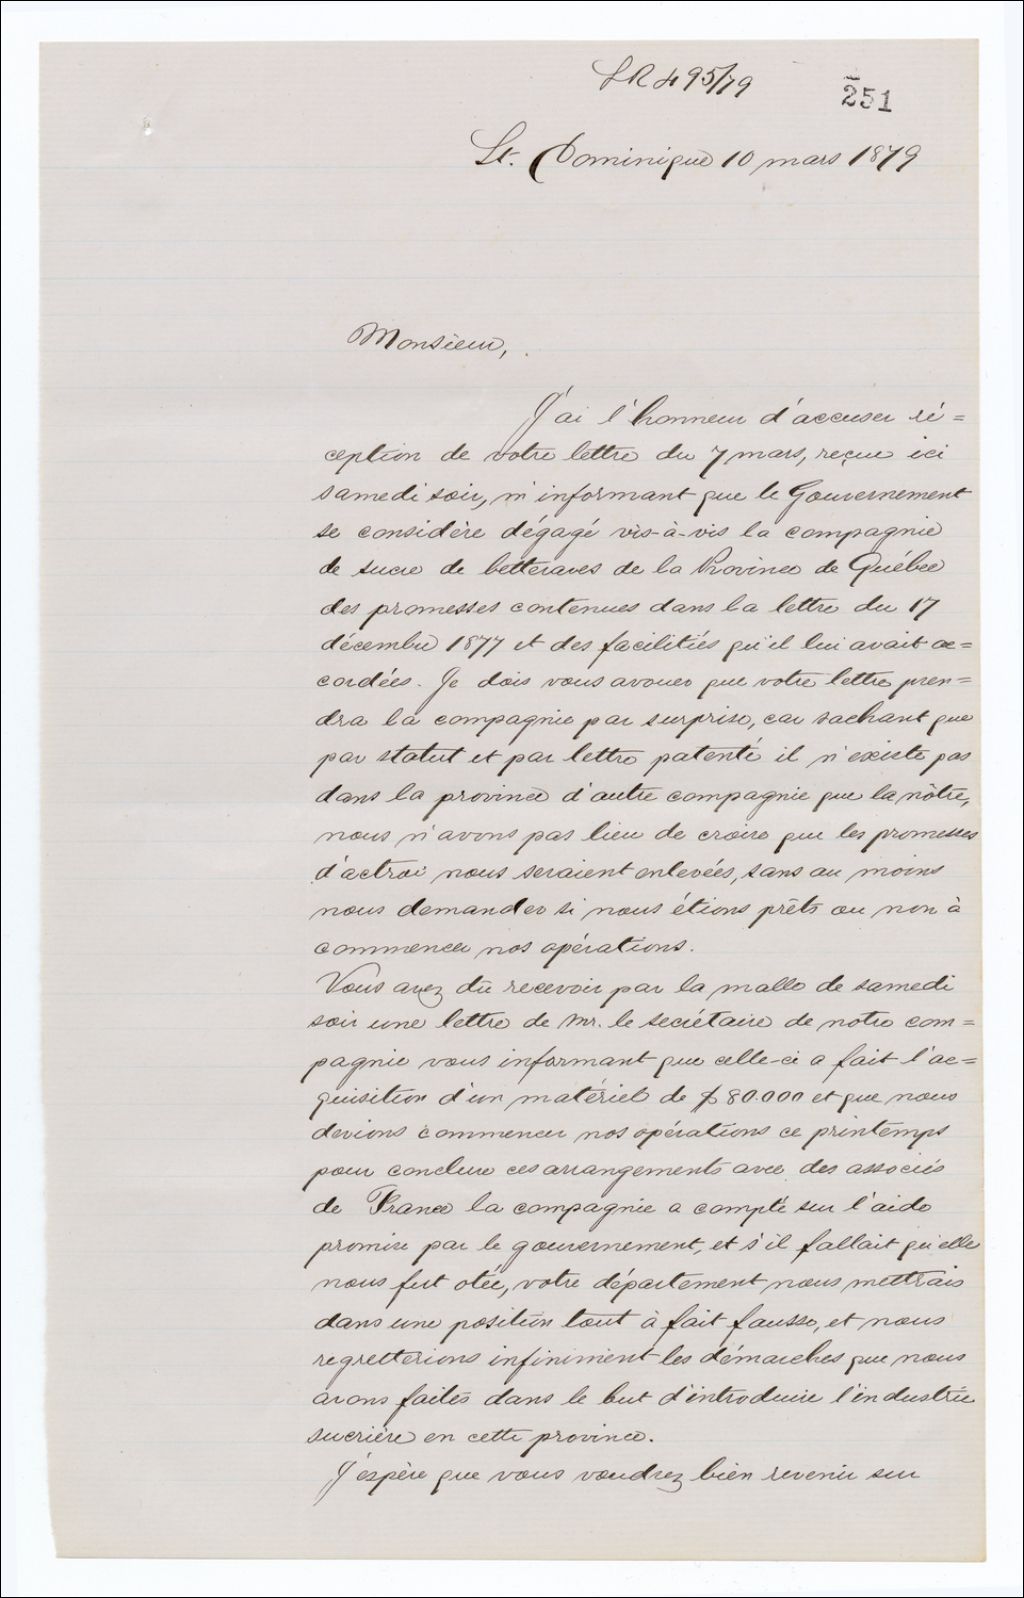 LR 495/79
251
St. Dominique 10 mars 1879
Monsieur,
J'ai l'honneur d'accuser ré=
ception de votre lettre du 7 mars, reçue ici
samedi soir, m'informant que le Gouvernement
se considère dégagé vis-à-vis la compagnie
de sucre de betteraves de la Province de Québec
des promesses contenues dans la lettre du 17
décembre 1877 et des facilités qu'il lui avait ac=
cordées. Je dois vous avouer que votre lettre pren=
dra la compagnie par surprise, car sachant que
par statut et par lettre patente il n'existe pas
dans la province d'autre compagnie que la nôtre,
nous n'avons pas lieu de croire que les promesses
d'octroi nous seraient enlevées, sans au moins
nous demander si nous étions prêts ou non à
commencer nos opérations.
Vous avez dû recevoir par la malle de samedi
soir une lettre de Mr. le secrétaire de notre com=
pagnie vous informant que celle-ci a fait l'ac=
quisition d'un matériel de $80.000 et que nous
devions commencer nos opérations ce printemps
pour conclure ces arrangements avec des associés
de France la compagnie a compté sur l'aide
promise par le gouvernement, et s'il fallait qu'elle
nous fut otée, votre département nous mettrais
dans une position tout à fait fausse, et nous
regretterions infiniment les démarches que nous
avons faites dans le but d'introduire l'industrie
sucrière en cette province.
J'espère que vous voudrez bien revenir sur